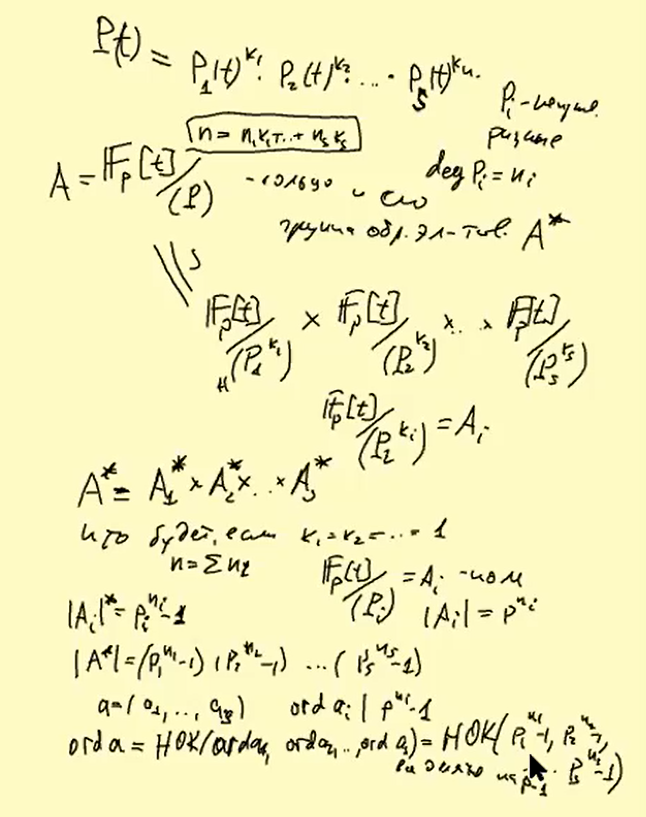 P(t) = P₁(t)^k₁ · P₂(t)^k₂ · ... · P_s(t)^kₛ.
P_i - непр.
разные
n = n₁k₁+..+ n_s k_s
deg P_i = n_i
A = F_p[t]/(P) - кольцо и его
группа обр. эл-тов. A*
\\ S
F_p[t]/(P₁^k₁) × F_p[t]/(P₂^k₂) ×.. × F_p[t]/(P_s^k_s)
F_p[t]/(P_i^k_i) = A_i
A* = A₁* × A₂* ×...× A_s*
что будет, если k₁=k₂=...= 1
n = Σ n_i
F_p[t]/(P_i) = A_i - поле
|A_i|* = p_i^n_i - 1
|A_i| = p^n_i
|A*| = (p₁^n₁ -1) (p₂^n₂ -1) ... ( p_s^n_s -1)
a = (a₁, .., a_s) ord a_i | p^n_i -1
ord a = НОК(ord a₁, ord a₂ .., ord a_s) = НОК( p₁^n₁ -1, p₂^n₂ -1,
на p-1 .. p_s^n_s -1)